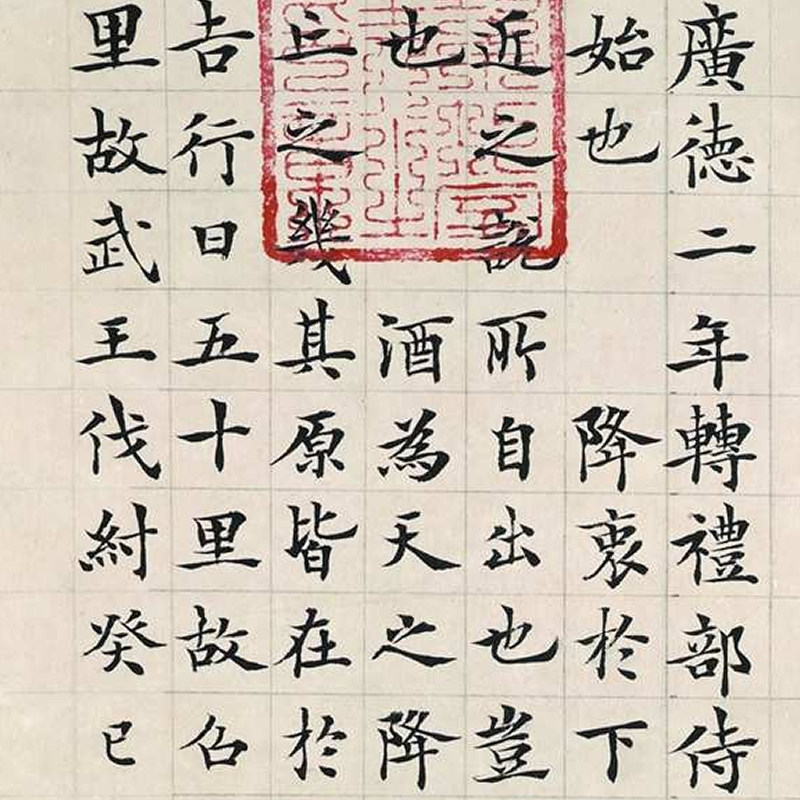 廣德二年轉禮部侍
始也 降衷於下
近之說所自出也豈
也 酒為天之降
亡之幾其原皆在於
吉行日五十里故召
里故武王伐紂癸巳